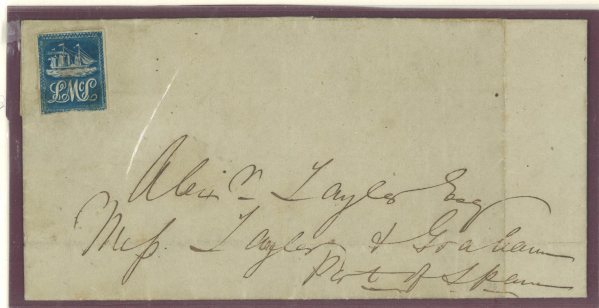 LMcL
Alexr. Taylor Esq
Mess. Taylor & Graham
Port of Spain